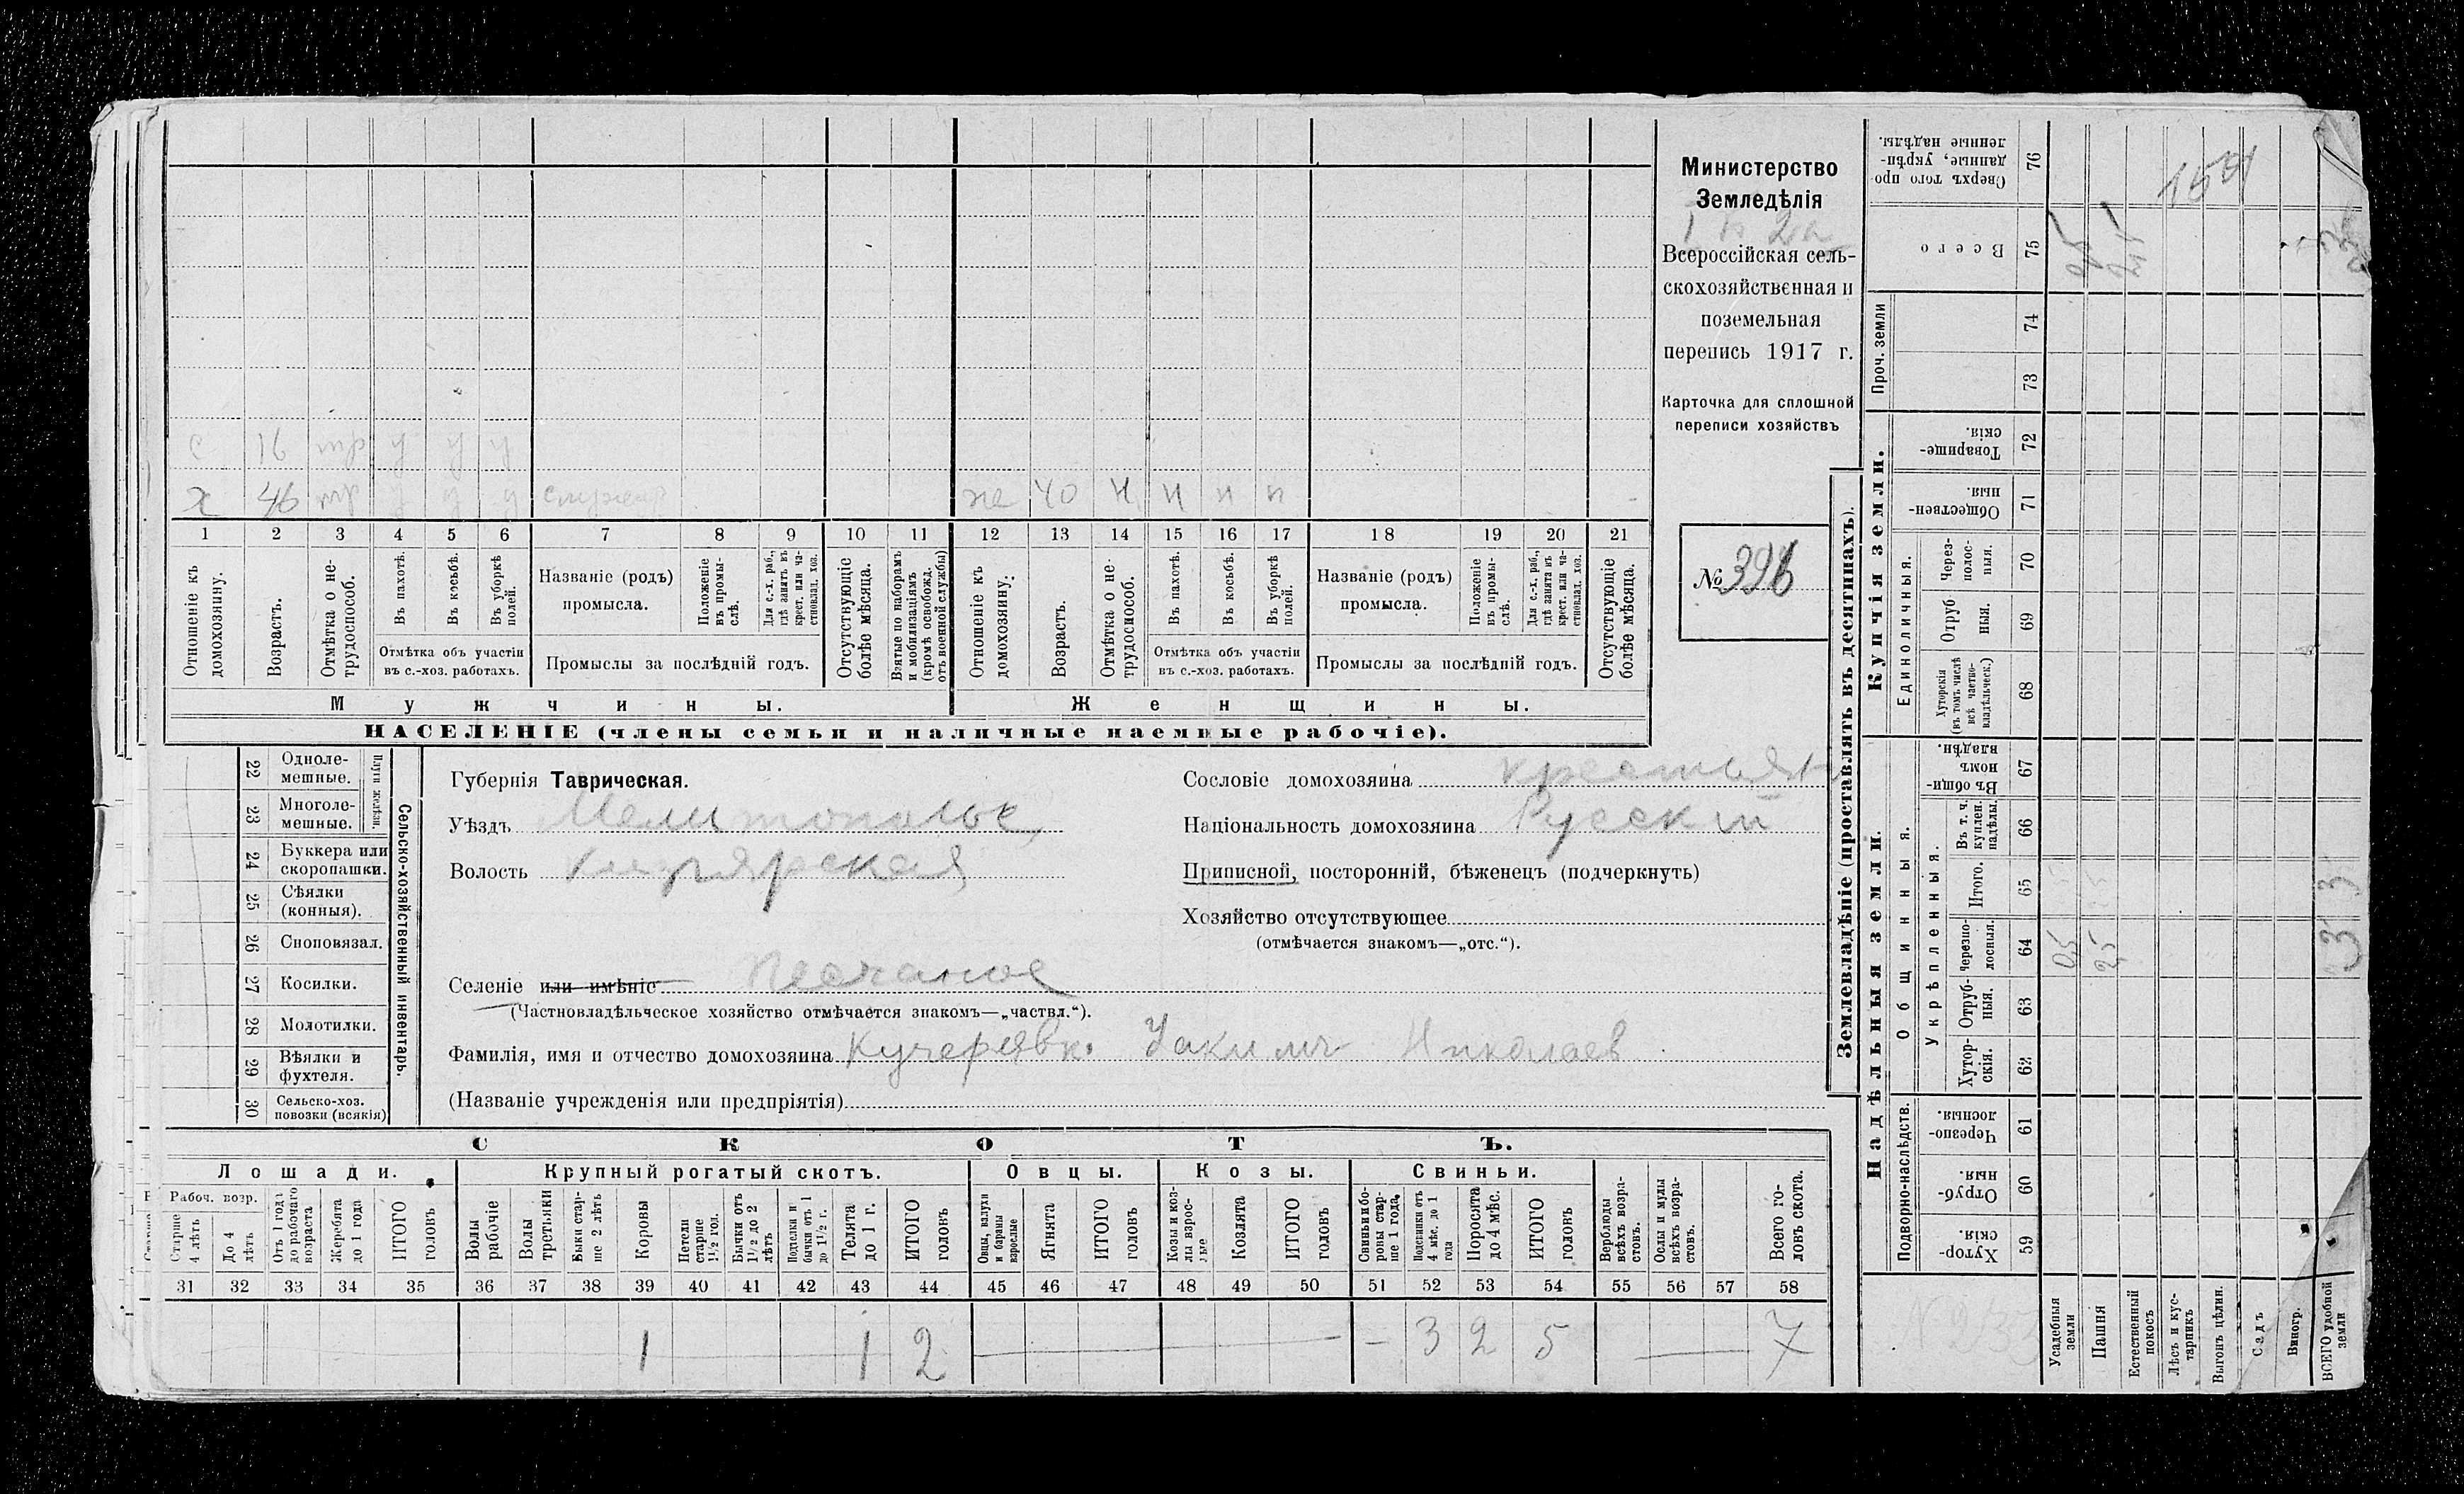 с 16 тр у у у
х 46 тр у у у же 40 н н н н
1 2 3 4 5 6 7 8 9 10 11 12 13 14 15 16 17 18 19 20 21
Отношеніе къ домохозяину.
Возрастъ.
Отмѣтка о не-трудоспособ.
Въ пахотѣ.
Въ косьбѣ.
Въ уборкѣ полей.
Отмѣтка объ участіи
въ с.-хоз. работахъ.
Названіе (родъ)
промысла.
Положеніе въ промы-слѣ.
Для с.-х. раб., гдѣ занятъ въ крест. или ча-стновлад. хоз.
Промыслы за послѣдній годъ.
Отсутствующіе болѣе мѣсяца.
Взятые по наборамъ и мобилизаціямъ (кромѣ освобожд. отъ военной службы)
Отношеніе къ домохозяину.
Возрастъ.
Отмѣтка о не-трудоспособ.
Въ пахотѣ.
Въ косьбѣ.
Въ уборкѣ полей.
Отмѣтка объ участіи
въ с.-хоз. работахъ.
Названіе (родъ)
промысла.
Положеніе въ промы-слѣ.
Для с.-х. раб., гдѣ занята въ крест. или ча-стновлад. хоз.
Промыслы за послѣдній годъ.
Отсутствующіе болѣе мѣсяца.
Мужчины.
Женщины.
НАСЕЛЕНІЕ (члены семьи и наличные наемные рабочіе).
Министерство
Земледѣлія
Всероссійская сель-
скохозяйственная и
поземельная
перепись 1917 г.
Карточка для сплошной
переписи хозяйствъ
№ 396
22 Одноле-мешные.
23 Многоле-мешные.
Плуги желѣзн.
24 Буккера или скоропашки.
25 Сѣялки (конныя).
26 Сноповязал.
27 Косилки.
28 Молотилки.
29 Вѣялки и фухтеля.
30 Сельско-хоз. повозки (всякія)
Сельско-хозяйственный инвентарь.
Губернія Таврическая.
Уѣздъ Мелитопольс.
Волость Кизіярская
Селеніе или имѣніе Песчаное
(Частновладѣльческое хозяйство отмѣчается знакомъ—„частвл.“).
Фамилія, имя и отчество домохозяина Кучерявк. Іакимъ Николаев
(Названіе учрежденія или предпріятія)
Сословіе домохозяина крестьян
Національность домохозяина Русскій
Приписной, посторонній, бѣженецъ (подчеркнуть)
Хозяйство отсутствующее
(отмѣчается знакомъ—„отс.“).
СКОТЪ.
Лошади. Крупный рогатый скотъ. Овцы. Козы. Свиньи.
Рабоч. возр.
Старше 4 лѣтъ
До 4 лѣтъ
Отъ 1 года до рабочаго возраста
Жеребята до 1 года
ИТОГО головъ
Волы рабочіе
Волы третьяки
Быки стар-ше 2 лѣтъ
Коровы
Нетели старше 1½ год.
Бычки отъ 1½ до 2 лѣтъ
Подтелки и бычки отъ 1 до 1½ г.
Телята до 1 г.
ИТОГО головъ
Овцы, валухи и бараны взрослые
Ягнята
ИТОГО головъ
Козы и коз-лы взрос-лые
Козлята
ИТОГО головъ
Свиньи и бо-ровы стар-ше 1 года.
Подсвинки отъ 4 мѣс. до 1 года
Поросята до 4 мѣс.
ИТОГО головъ
Верблюды всѣхъ возра-стовъ.
Ослы и мулы всѣхъ возра-стовъ.
Всего го-ловъ скота.
31 32 33 34 35 36 37 38 39 40 41 42 43 44 45 46 47 48 49 50 51 52 53 54 55 56 57 58
1 1 2 — — 3 2 5 — 7
Землевладѣніе (проставлять въ десятинахъ).
Надѣльныя земли.
Купчія земли.
Проч. земли
Подворно-наслѣдств.
Общинныя.
Укрѣпленныя.
Единоличныя.
Сверхъ того про данные, укрѣп-ленные надѣлы. 76
Всего 75
74
73
Товарище-скія. 72
Обществен-ныя. 71
Через-полос-ныя. 70
Отруб ныя. 69
Хуторскія (въ томъ числѣ всѣ частно-владѣльческ.) 68
Въ общи-номъ владѣн. 67
Въ т. ч. куплен. надѣлы. 66
Итого. 65
Черезпо-лосныя. 64
Отруб-ныя. 63
Хутор-скія. 62
Черезпо-лосныя. 61
Отруб-ныя. 60
Хутор-скія. 59
Усадебныя земли
Пашня
Естественный покосъ
Лѣсъ и кус-тарникъ
Выгонъ цѣлин.
Садъ
Виногр.
ВСЕГО удобной земли